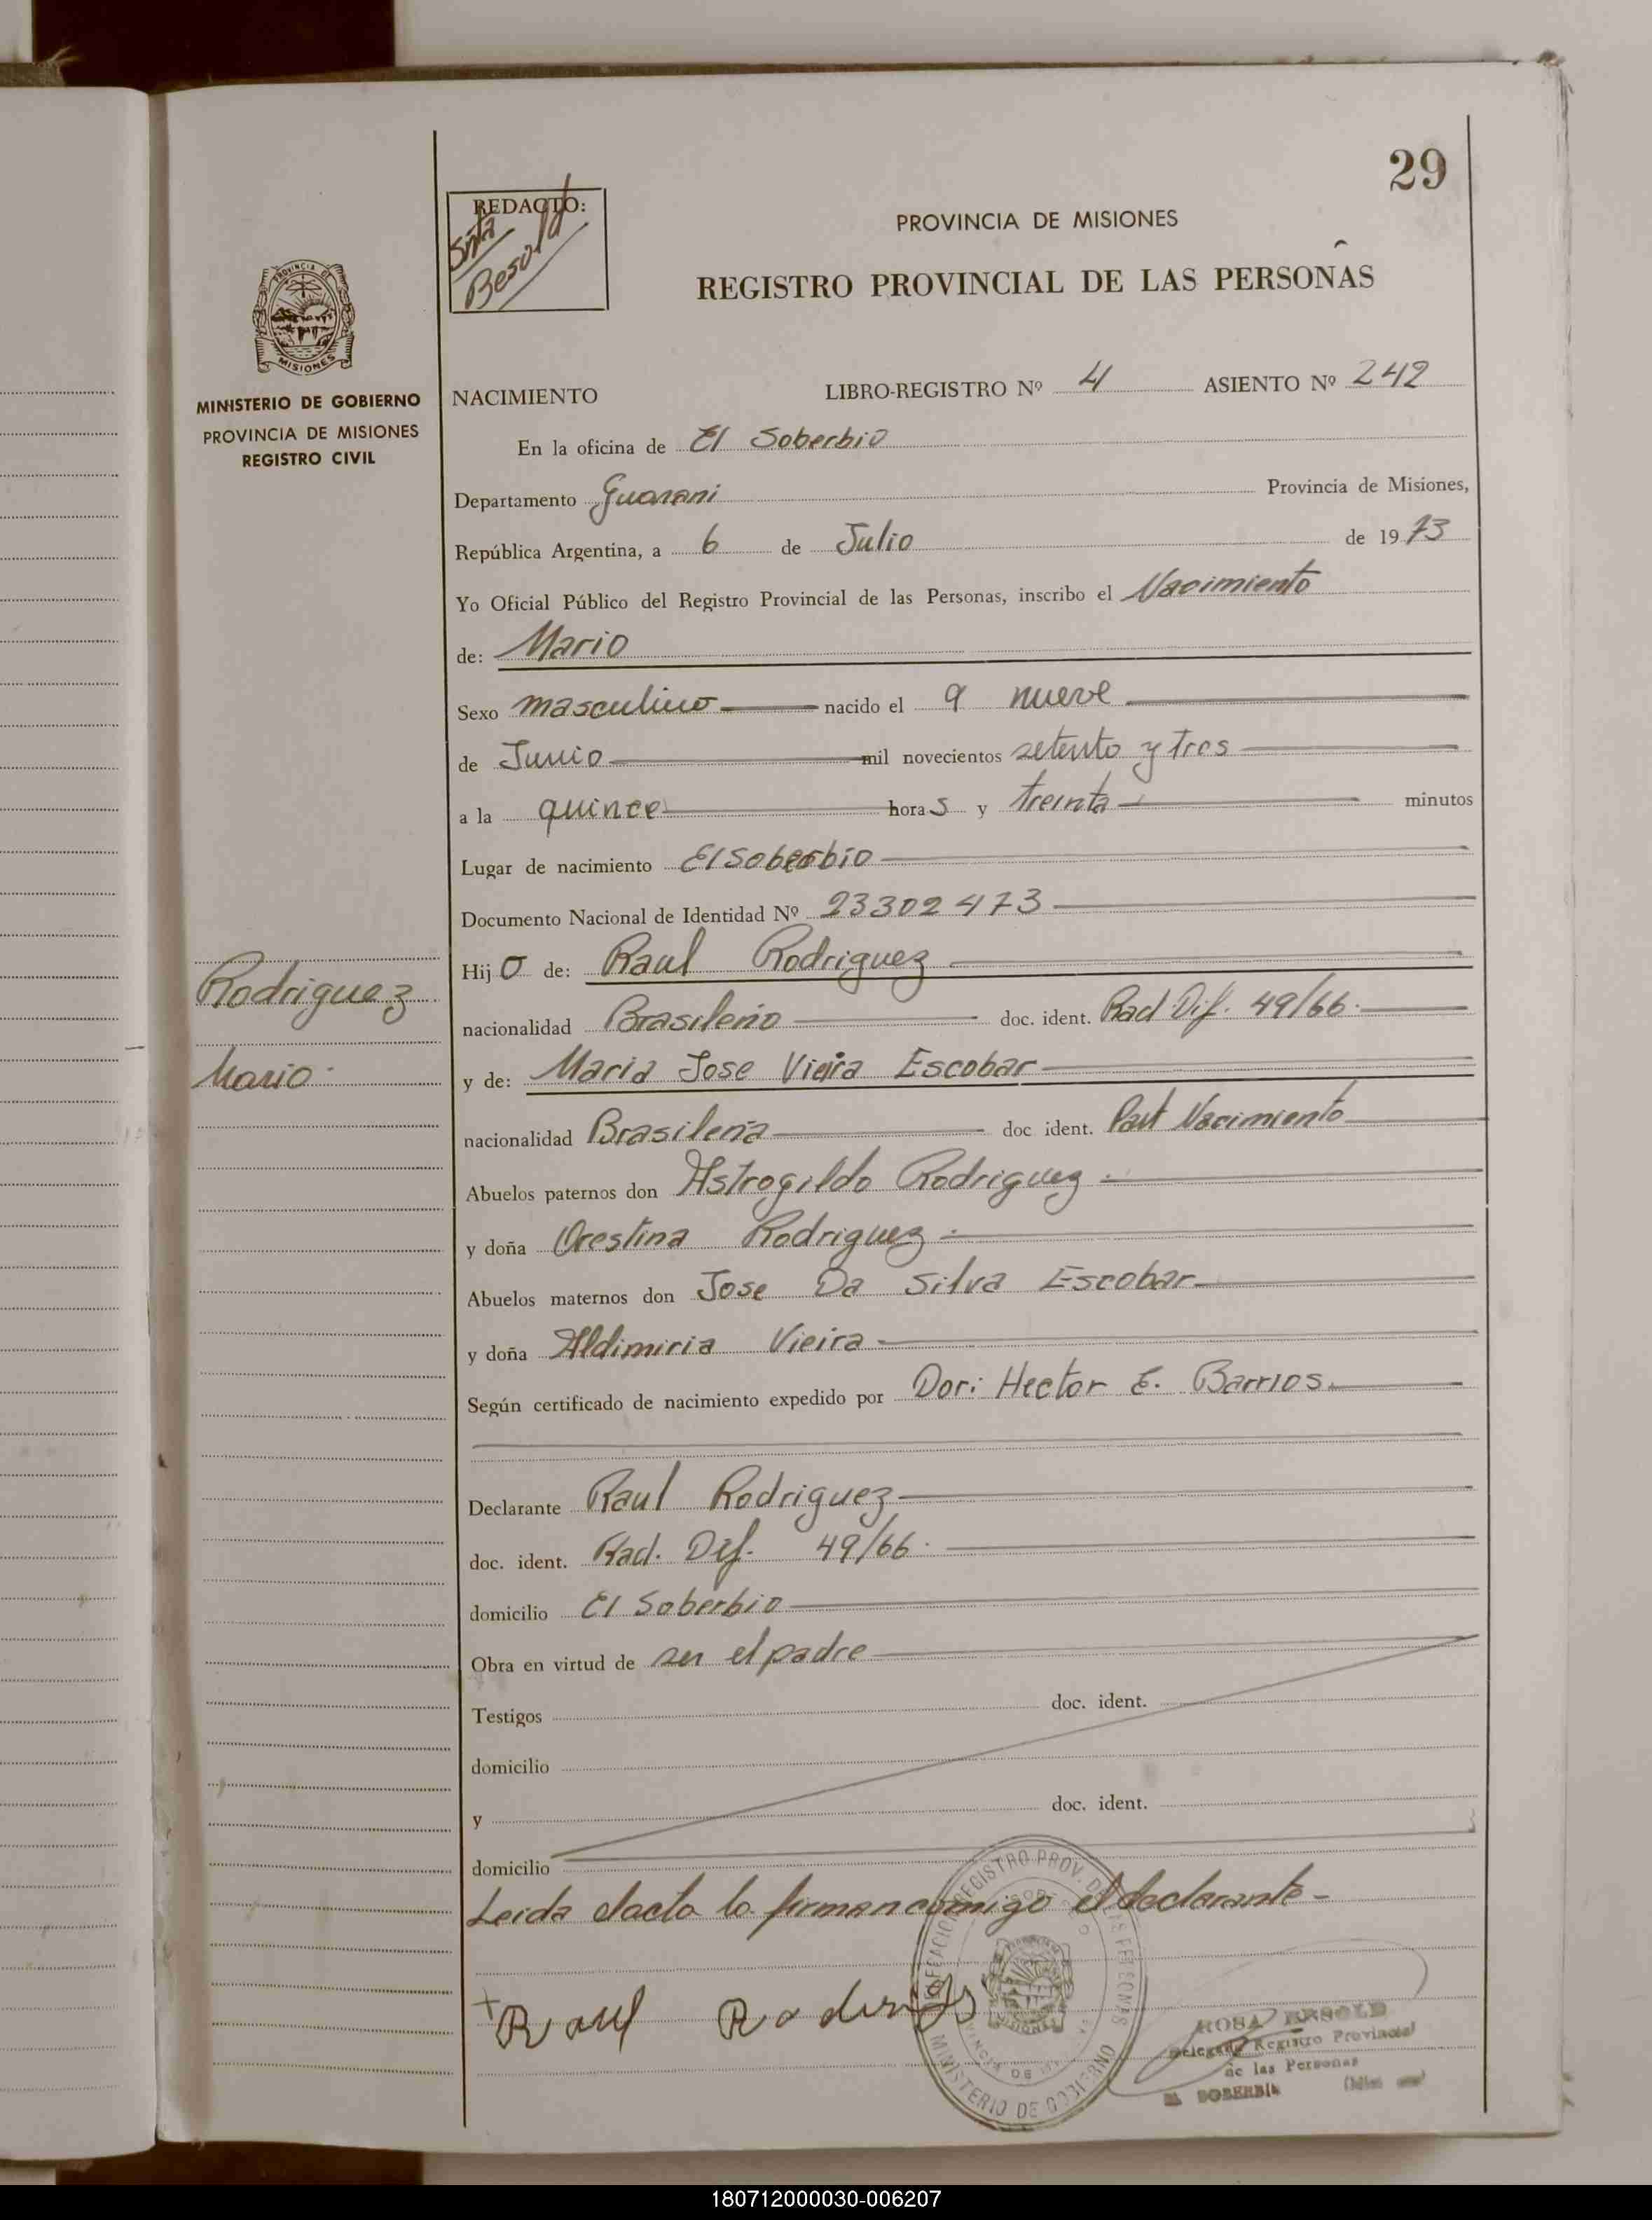 29
REDACTO:
Srita
Besold
PROVINCIA DE MISIONES
REGISTRO PROVINCIAL DE LAS PERSONAS
PROVINCIA DE
MISIONES
MINISTERIO DE GOBIERNO
PROVINCIA DE MISIONES
REGISTRO CIVIL
NACIMIENTO LIBRO-REGISTRO Nº 4 ASIENTO Nº 242
En la oficina de El Soberbio
Departamento Guarani Provincia de Misiones,
República Argentina, a 6 de Julio de 1973
Yo Oficial Público del Registro Provincial de las Personas, inscribo el Nacimiento
de: Mario
Sexo masculino nacido el 9 nueve
de Junio mil novecientos setenta y tres
a la quince horas y treinta minutos
Lugar de nacimiento El Soberbio
Documento Nacional de Identidad Nº 23302473
Hijo de: Raul Rodriguez
Rodriguez
nacionalidad Brasileño doc. ident. Rad Dif. 49/66.
Mario
y de: Maria Jose Vieira Escobar
nacionalidad Brasileña doc ident. Part Nacimiento
Abuelos paternos don Astrogildo Rodriguez
y doña Orestina Rodriguez
Abuelos maternos don Jose Da Silva Escobar
y doña Aldimiria Vieira
Según certificado de nacimiento expedido por Dor: Hector E. Barrios.
Declarante Raul Rodriguez
doc. ident. Rad. Dif. 49/66.
domicilio El Soberbio
Obra en virtud de ser el padre
Testigos doc. ident.
domicilio
y doc. ident.
domicilio
Leida el acta la firman conmigo el declarante-
Raul
REGISTRO PROV. DE LAS PERSONAS
MINISTERIO DE GOBIERNO
MISIONES
ROSA BESOLD
Delegada Registro Provincial
de las Personas
EL SOBERBIO
180712000030-006207